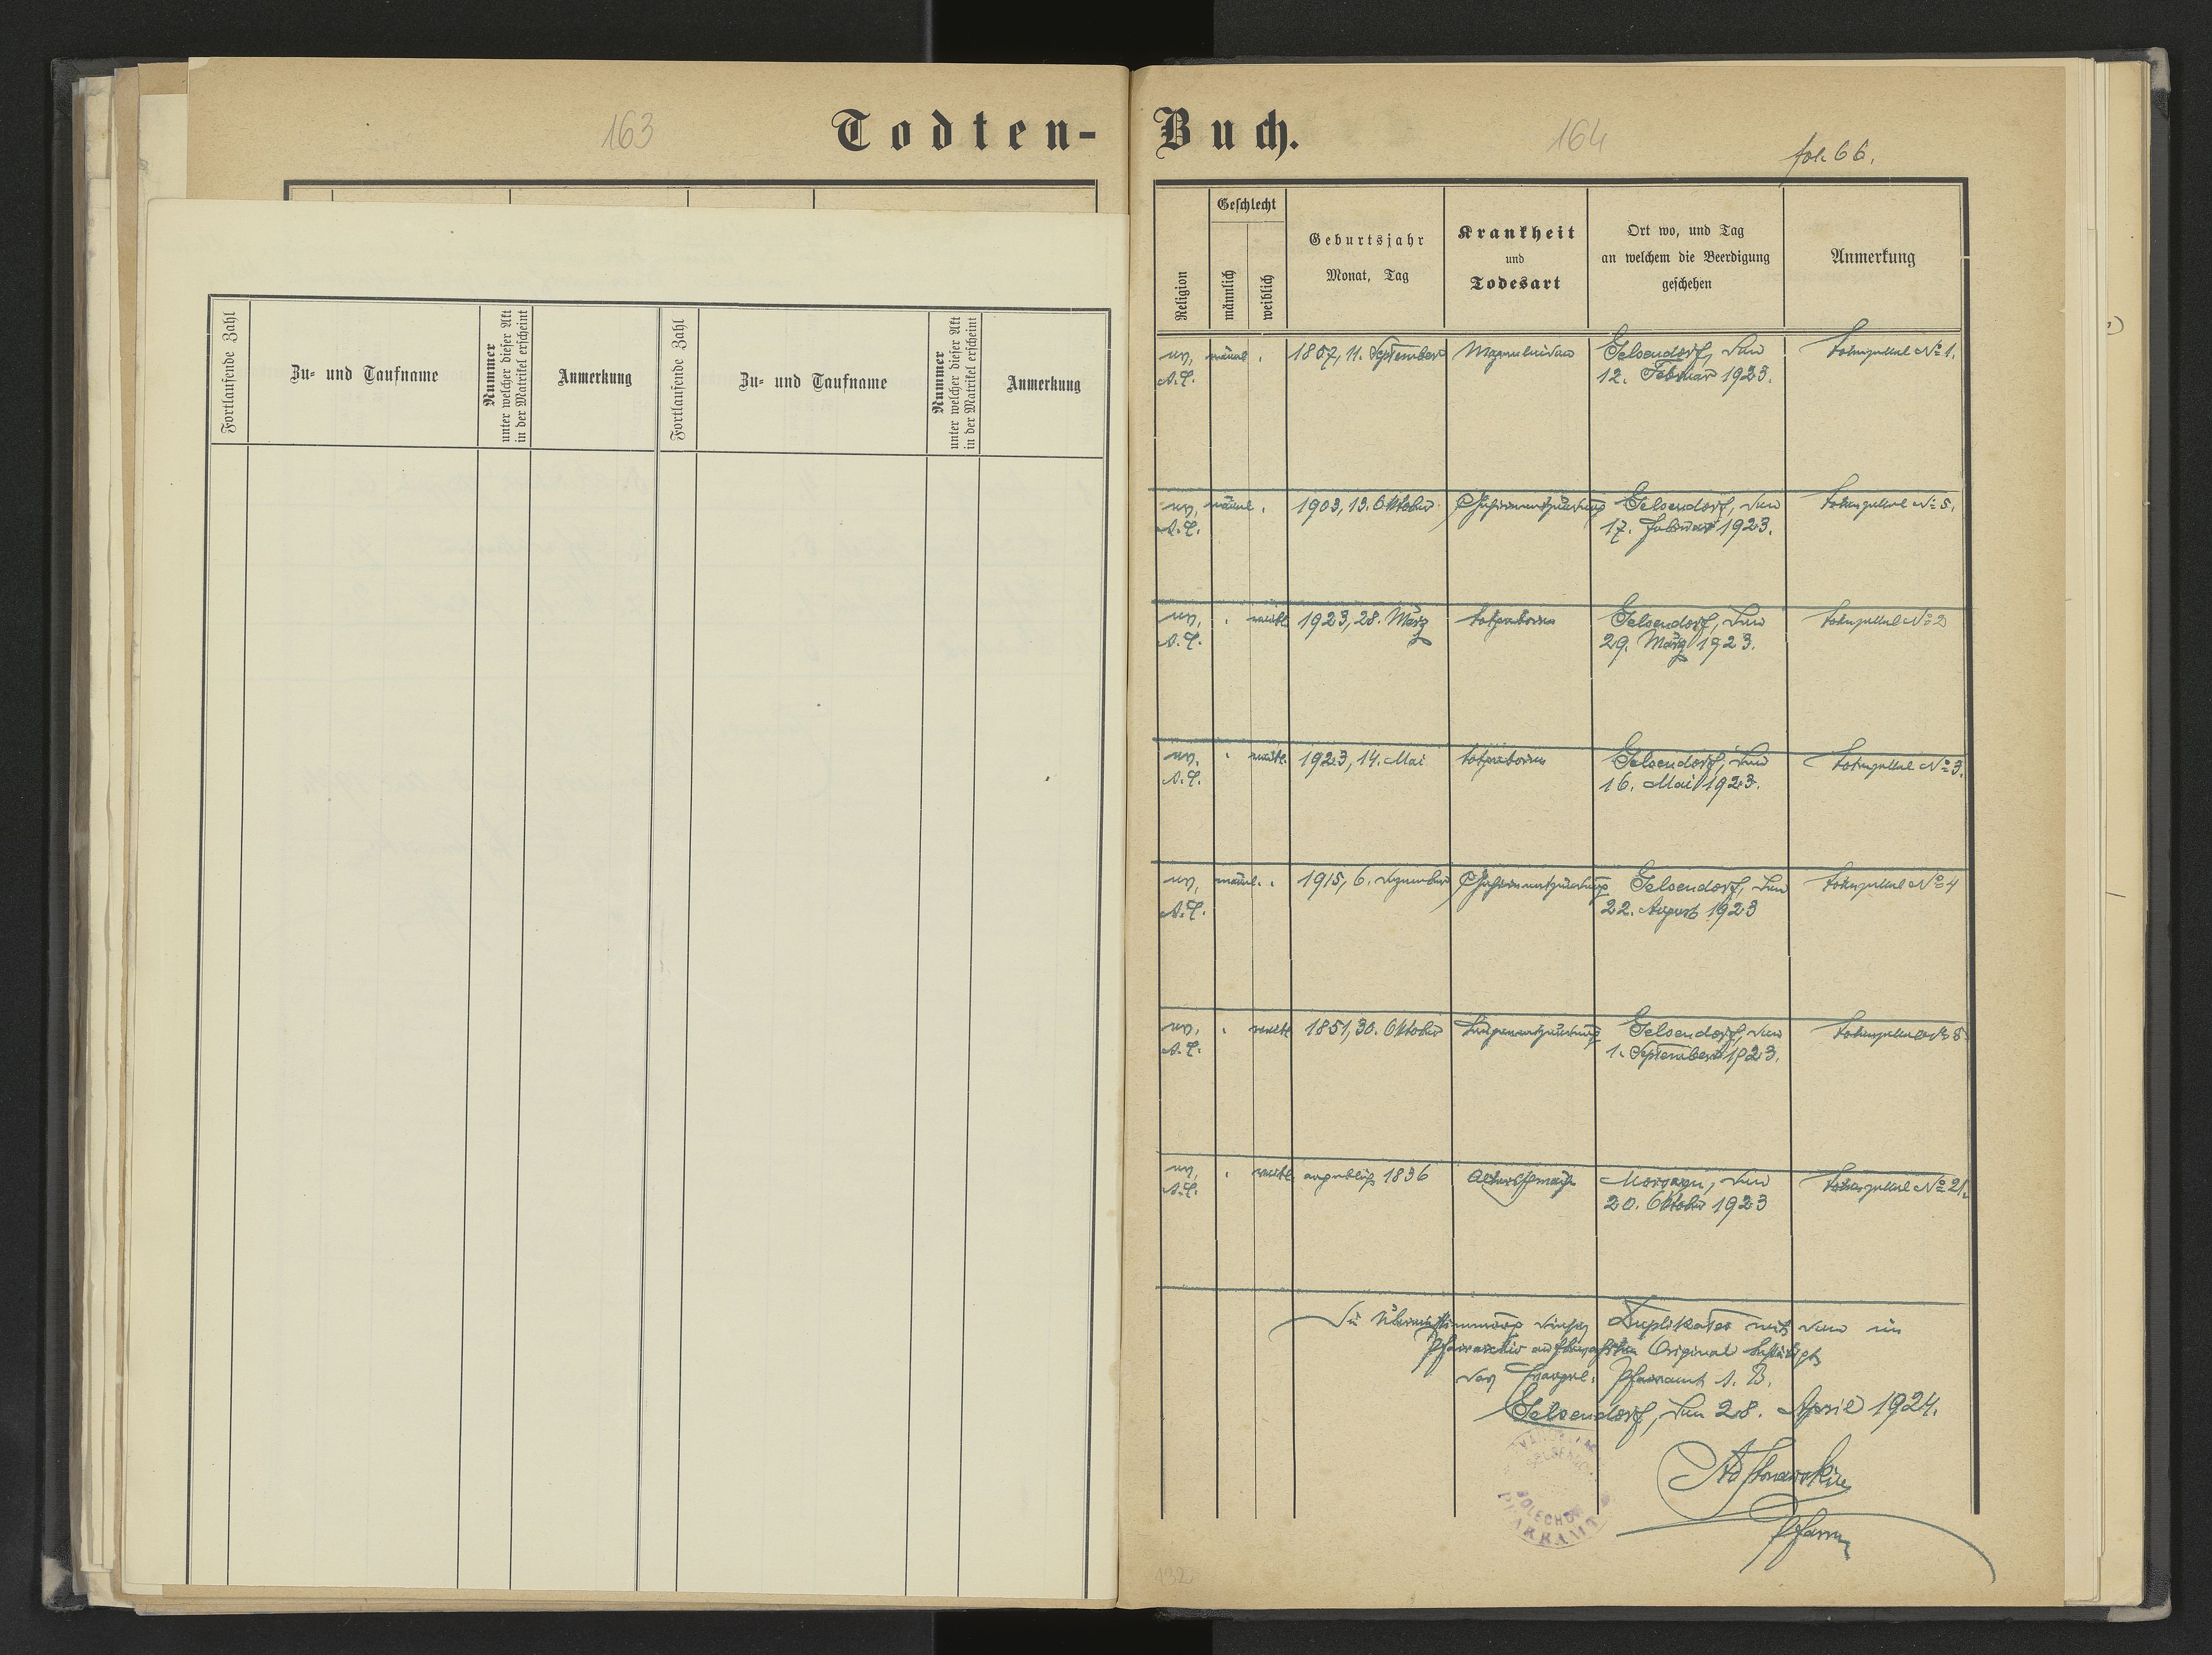 163
Todten-
Fortlaufende Zahl
Zu- und Taufname
Nummer
unter welcher dieser Akt
in der Matrikel erscheint
Anmerkung
Fortlaufende Zahl
Zu- und Taufname
Nummer
unter welcher dieser Akt
in der Matrikel erscheint
Anmerkung
Buch.
164
fol. 66.
Religion
Geschlecht
männlich
weiblich
Geburtsjahr
Monat, Tag
Krankheit
und
Todesart
Ort wo, und Tag
an welchem die Beerdigung
geschehen
Anmerkung
ev.
A.C.
männl.
1857, 11. September
Magenleiden
Gelsendorf, den
12. Februar 1923.
Totenzettel No 1.
ev.
A.C.
männl.
1903, 13. Oktober
Gehirnentzündung
Gelsendorf, den
17. Februar 1923.
Totenzettel No 5.
ev.
A.C.
weibl.
1923, 28. März
totgeboren
Gelsendorf, den
29. März 1923.
Totenzettel No 2
ev.
A.C.
weibl.
1923, 14. Mai
totgeboren
Gelsendorf, den
16. Mai 1923.
Totenzettel No 3.
ev.
A.C.
männl.
1915, 6. Dezember
Gehirnentzündung
Gelsendorf, den
22. August 1923
Totenzettel No 4
ev.
A.C.
weibl.
1851, 30. Oktober
Lungenentzündung
Gelsendorf, den
1. September 1923.
Totenzettel No 8
ev.
A.C.
weibl.
angeblich 1836
Altersschwäche
Morszyn, den
20. Oktober 1923
Totenzettel No 21.
Die Übereinstimmung dieses Duplikates mit dem im
Pfarrarchiv aufbewahrten Original bestätigt
das Evangel. Pfarramt A. B.
Gelsendorf, den 28. April 1924.
Pfarrer
BOLECHÓW
PFARRAMT
132